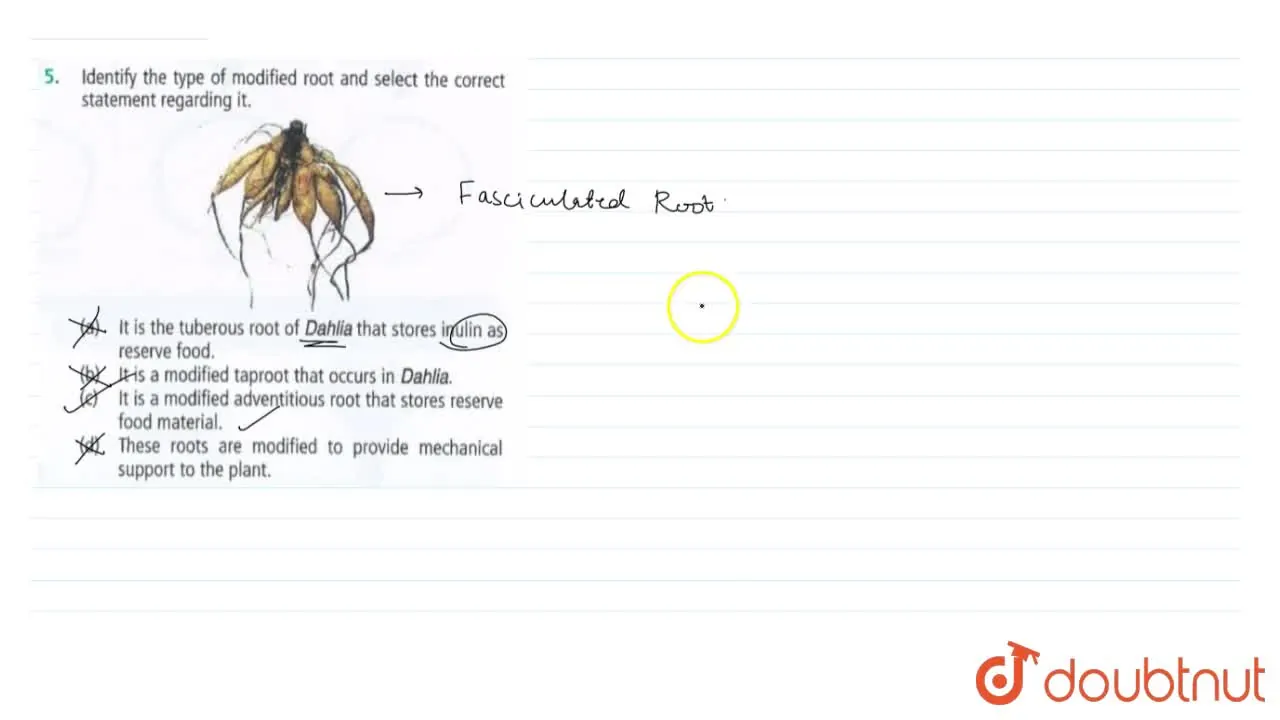 5. Identify the type of modified root and select the correct
statement regarding it.
→ Fasciculated Root
(a) It is the tuberous root of Dahlia that stores inulin as
reserve food.
(b) It is a modified taproot that occurs in Dahlia.
(c) It is a modified adventitious root that stores reserve
food material.
(d) These roots are modified to provide mechanical
support to the plant.
doubtnut